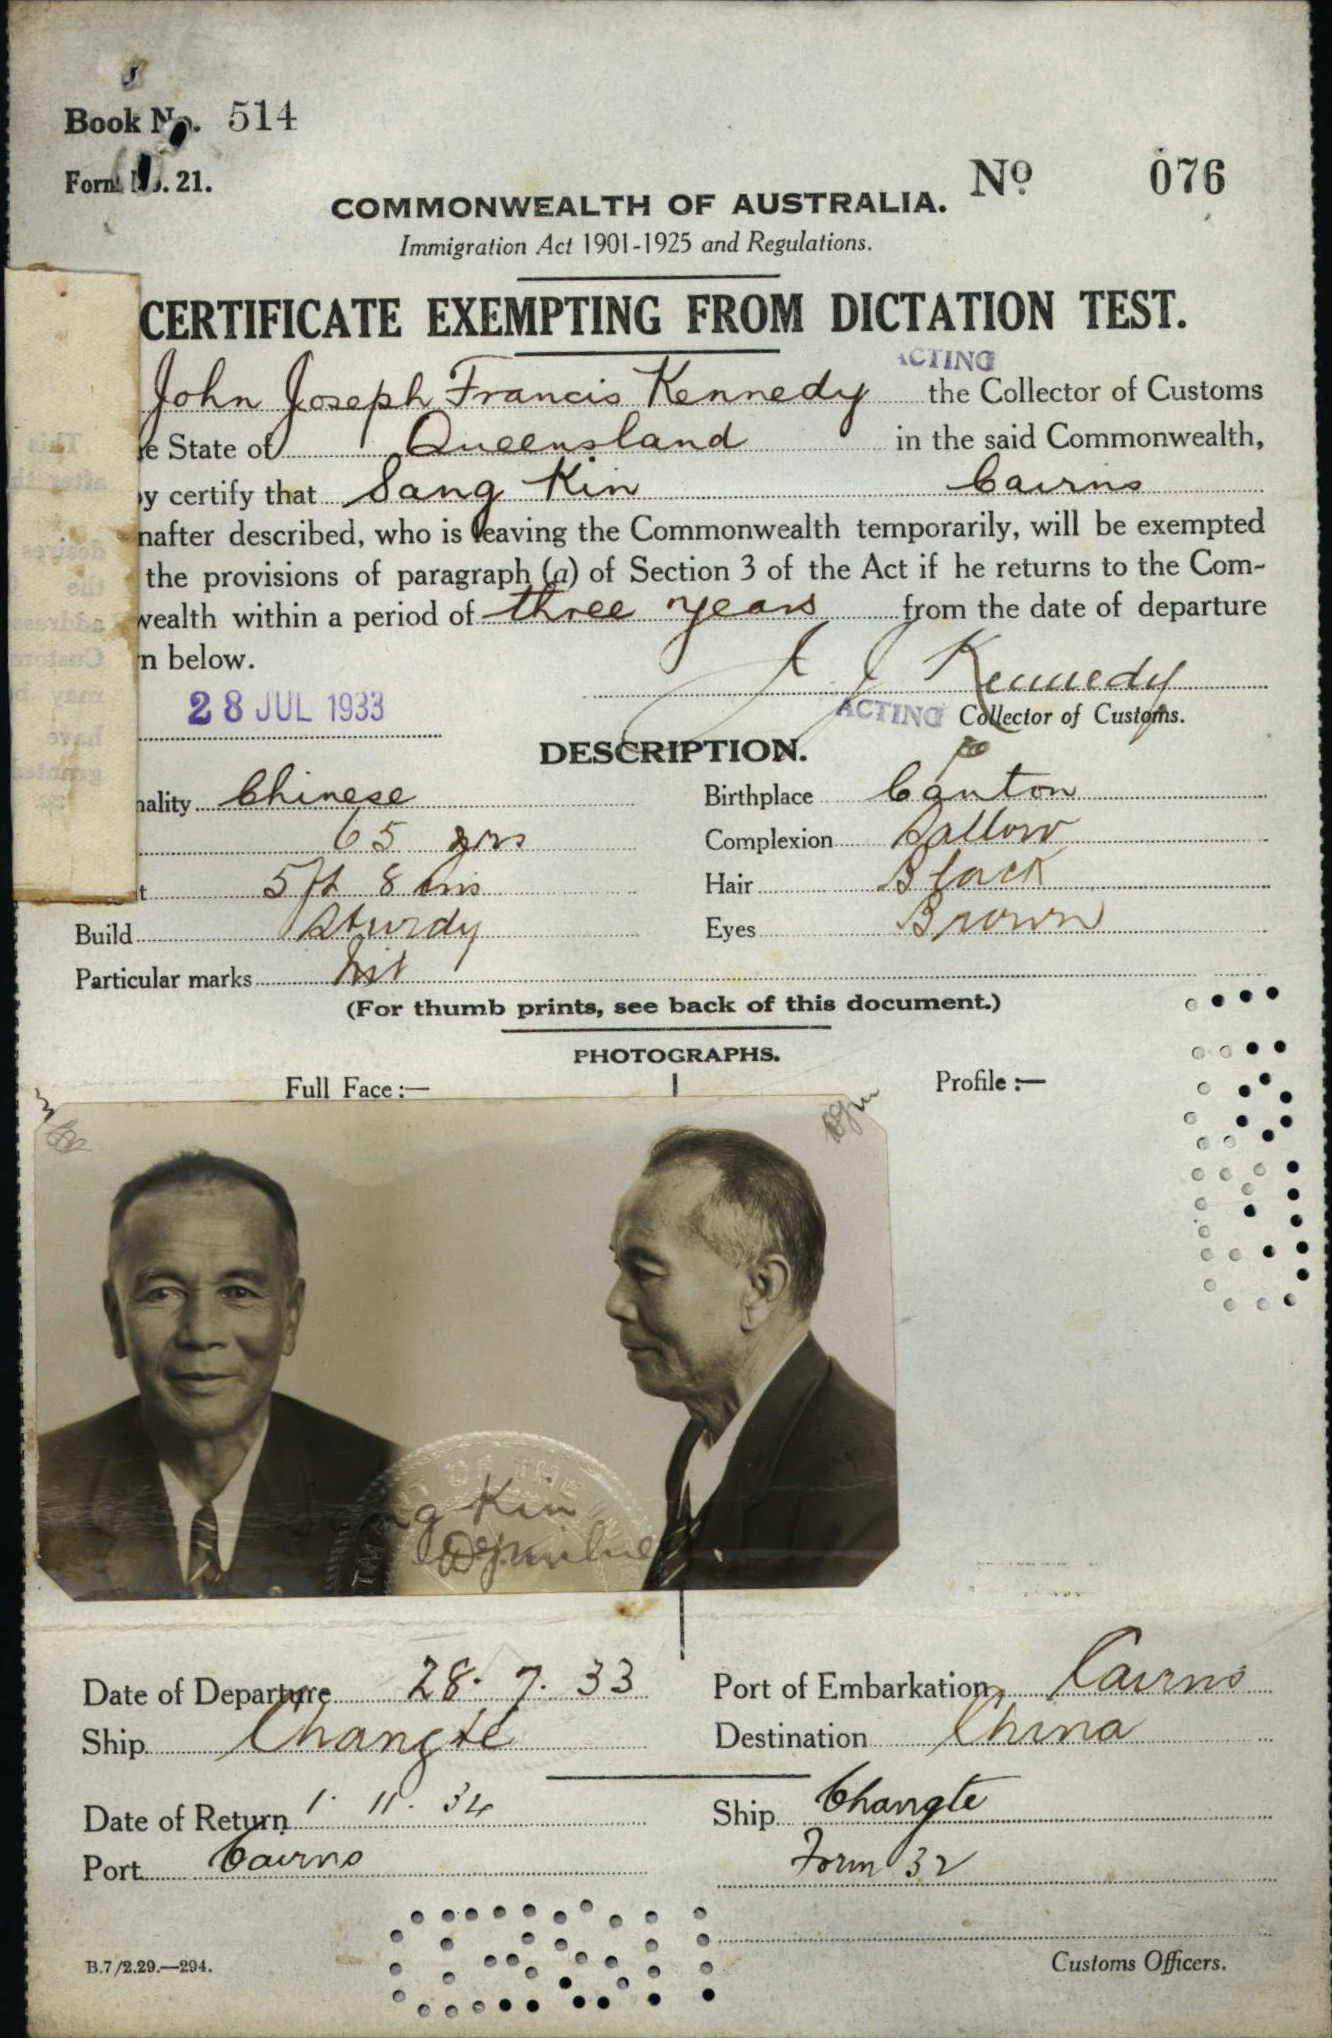 Book No. 514
Form No. 21.
No 076
COMMONWEALTH OF AUSTRALIA.
Immigration Act 1901-1925 and Regulations.
CERTIFICATE EXEMPTING FROM DICTATION TEST.
ACTING
John Joseph Francis Kennedy the Collector of Customs
e State of Queensland in the said Commonwealth,
by certify that Sang Kin Cairns
nafter described, who is leaving the Commonwealth temporarily, will be exempted
the provisions of paragraph (a) of Section 3 of the Act if he returns to the Com-
wealth within a period of three years from the date of departure
n below.
J J Kennedy
28 JUL 1933
ACTING Collector of Customs.
DESCRIPTION.
nality Chinese Birthplace Canton
65 yrs Complexion Sallow
t 5ft 8 ins Hair Black
Build Sturdy Eyes Brown
Particular marks Nil
(For thumb prints, see back of this document.)
PHOTOGRAPHS.
Full Face :— Profile :—
OF THE
ng Kin
Date of Departure 28. 7. 33 Port of Embarkation Cairns
Ship Changte Destination China
Date of Return 1. 11. 34 Ship Changte
Port Cairns Form 32
B.7/2.29.—294. Customs Officers.